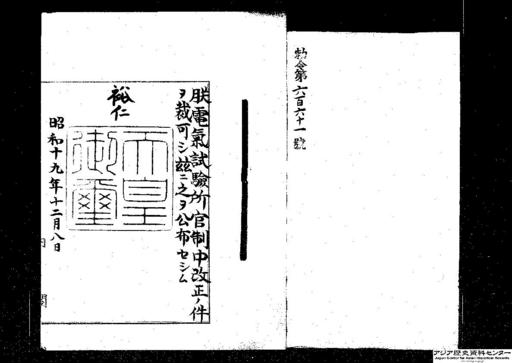 勅令第六百六十一號
朕電氣試驗所官制中改正ノ件
ヲ裁可シ玆ニ之ヲ公布セシム
裕仁
天皇
御璽
昭和十九年十二月八日
アジア歴史資料センター
Japan Center for Asian Historical Records